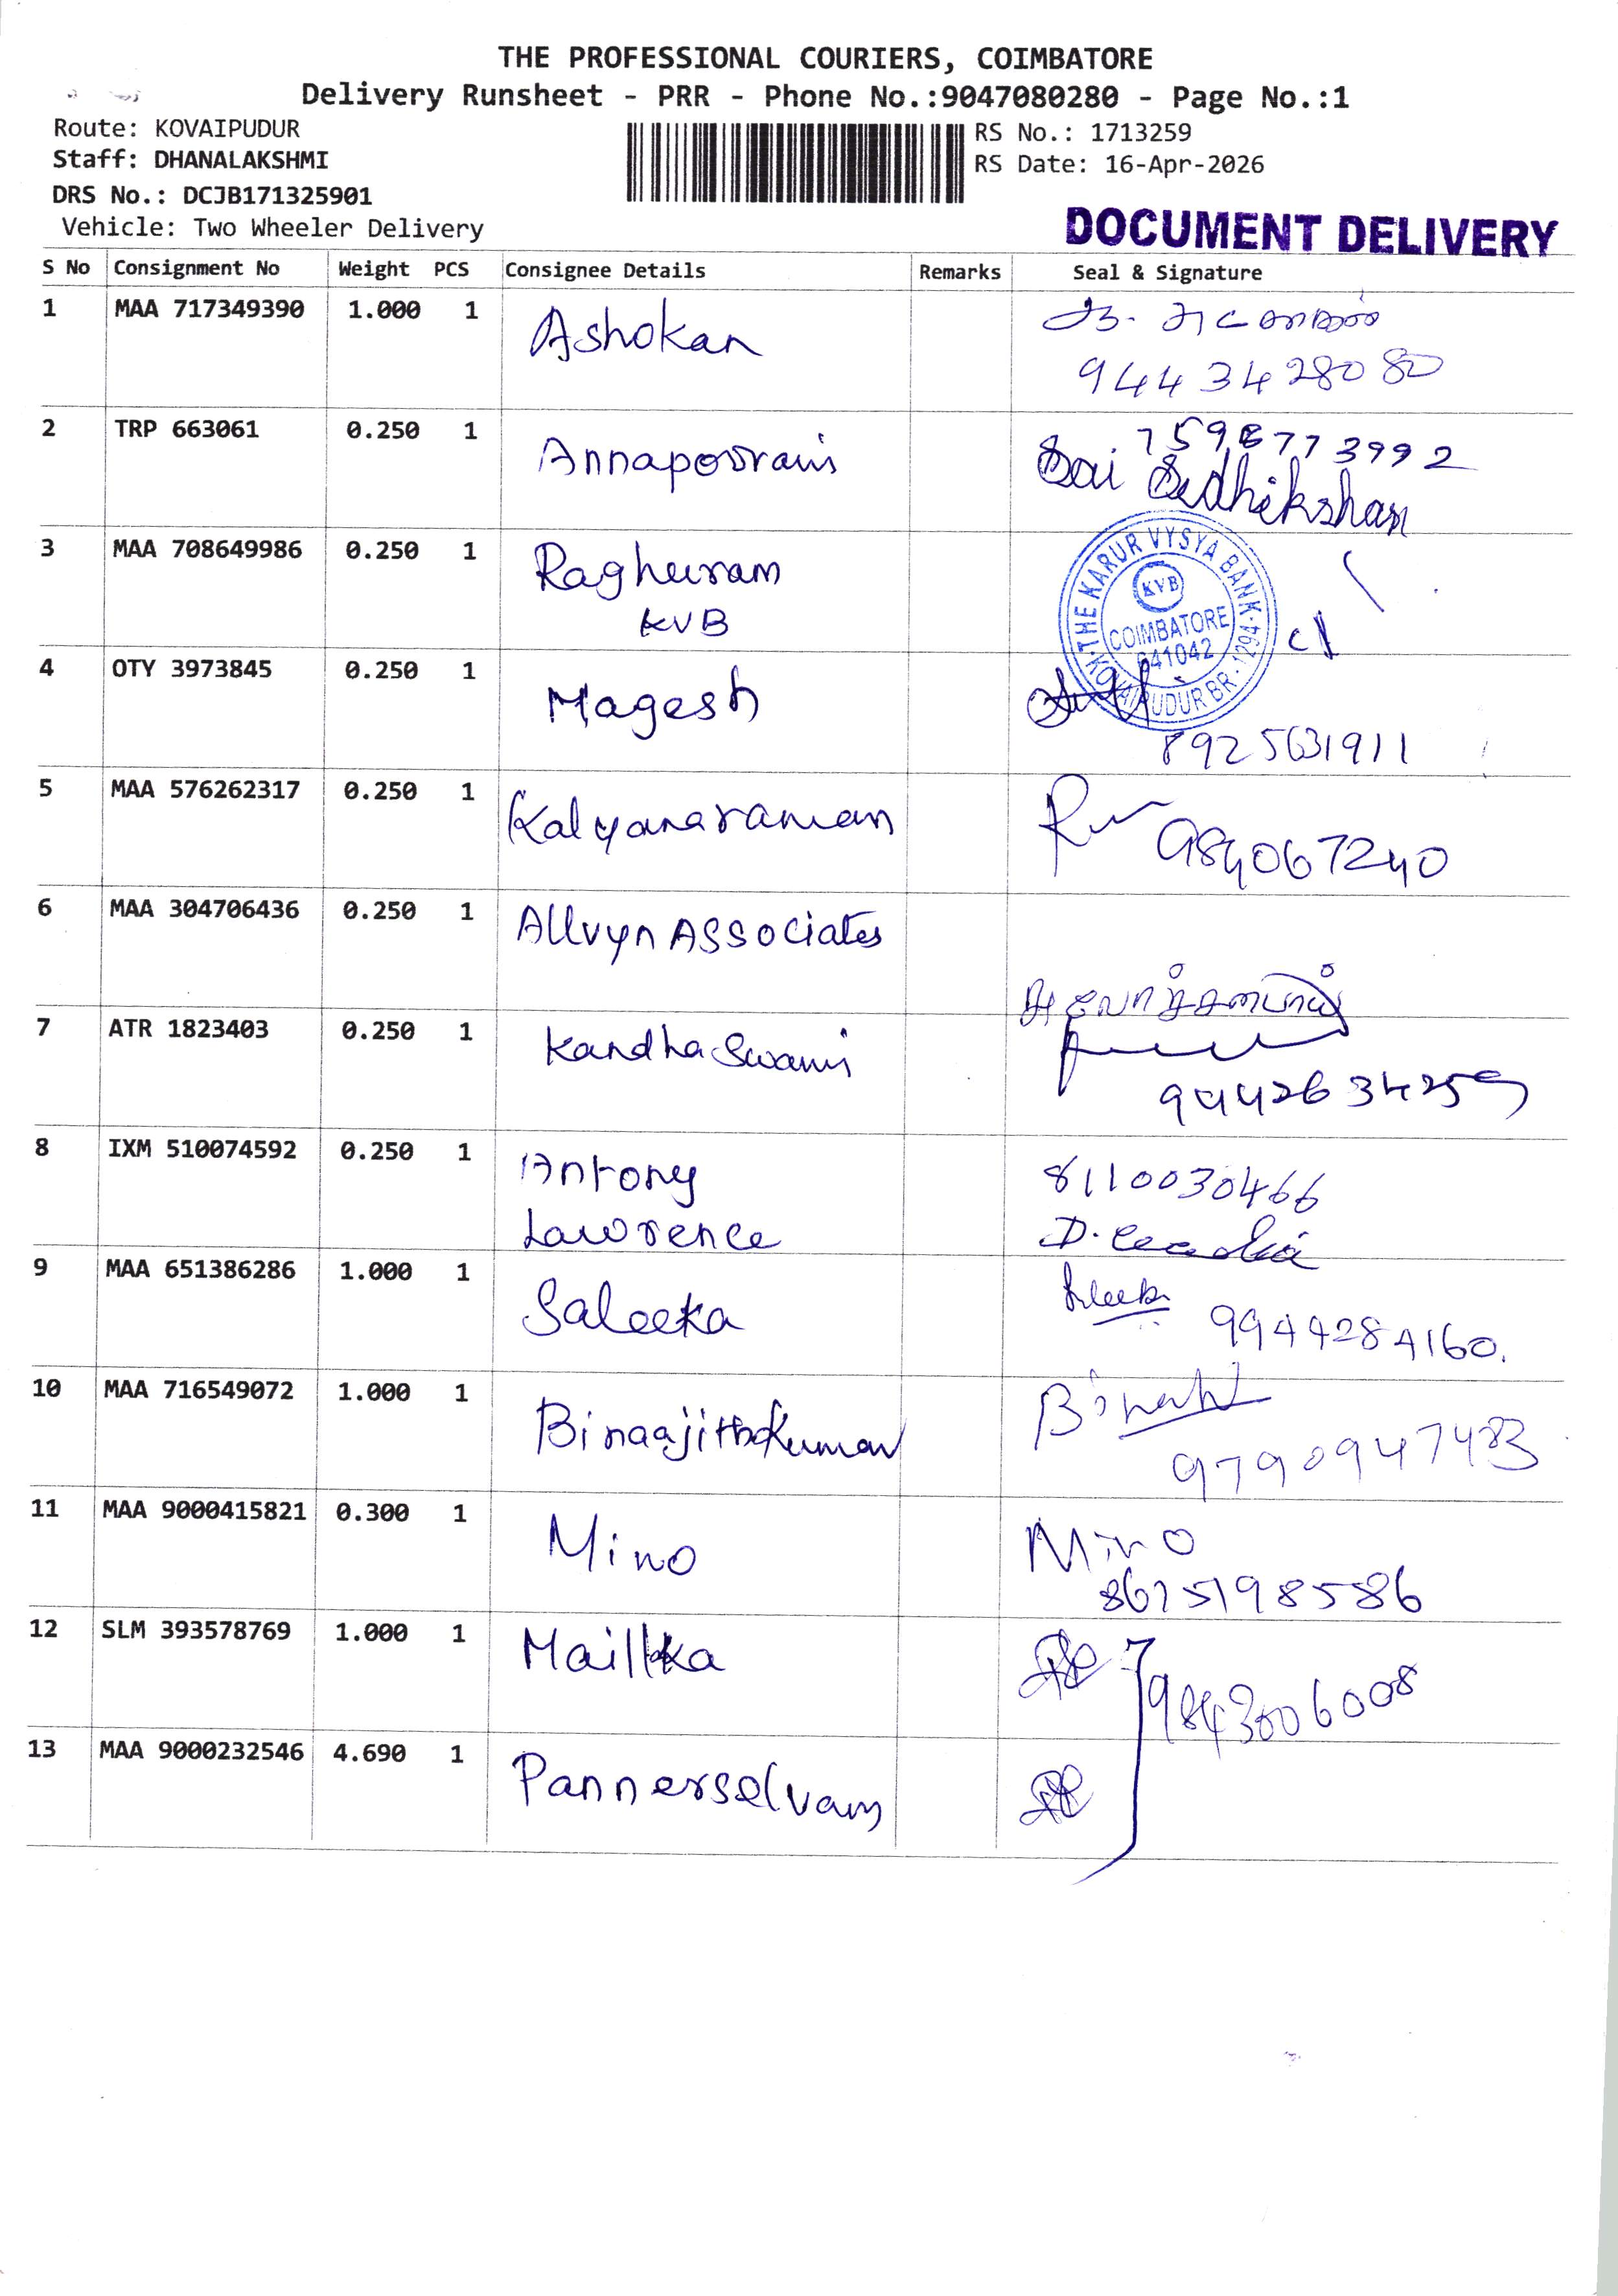 THE PROFESSIONAL COURIERS, COIMBATORE
Delivery Runsheet - PRR - Phone No.:9047080280 - Page No.:1
Route: KOVAIPUDUR
Staff: DHANALAKSHMI
DRS No.: DCJB171325901
Vehicle: Two Wheeler Delivery
RS No.: 1713259
RS Date: 16-Apr-2026
DOCUMENT DELIVERY
S No Consignment No Weight PCS Consignee Details Remarks Seal & Signature
1 MAA 717349390 1.000 1 Ashokan
9443428080
2 TRP 663061 0.250 1 Annapoorani 7598773992
Sai Sidhikshan
3 MAA 708649986 0.250 1 Raghuram
KVB
THE KARUR VYSYA BANK
KVB
COIMBATORE
641042
KOVAIPUDUR BR. 1294
4 OTY 3973845 0.250 1 Magesh
8925631911
5 MAA 576262317 0.250 1 Kalyanaraman
984067240
6 MAA 304706436 0.250 1 Allvyn Associates
7 ATR 1823403 0.250 1 Kandha Swami
9442634259
8 IXM 510074592 0.250 1 Antony 8110030466
Lawrence
9 MAA 651386286 1.000 1 Saleeka
9944284160.
10 MAA 716549072 1.000 1 Binaajithkumar
9790947483
11 MAA 9000415821 0.300 1 Mino Mino
8675198586
12 SLM 393578769 1.000 1 Maillka
9843006008
13 MAA 9000232546 4.690 1 Pannerselvam